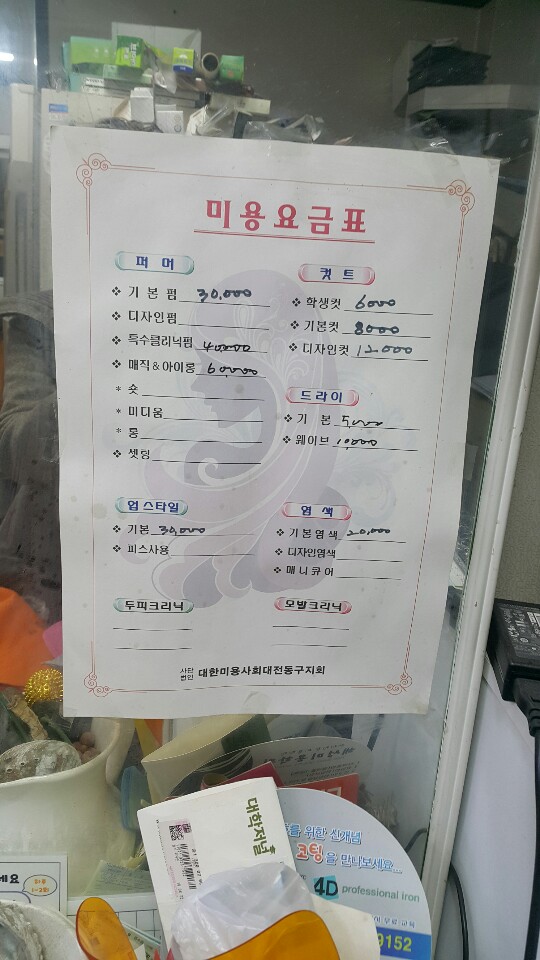 미용요금표
퍼 머
❖ 기 본 펌 30,000
❖ 디자인펌
❖ 특수클리닉펌 40000
❖ 매직&아이롱 60,000
* 숏
* 미디움
* 롱
❖ 셋팅
컷 트
❖ 학생컷 6000
❖ 기본컷 8000
❖ 디자인컷 12000
드라이
❖ 기 본 5,000
❖ 웨이브 10,000
업스타일
❖ 기본 30,000
❖ 피스사용
염 색
❖ 기본염색 20,000
❖ 디자인염색
❖ 매니큐어
두피크리닉
모발크리닉
사단법인 대한미용사회대전동구지회
대학저널
를 위한 신개념
코팅을 만나보세요
4D professional iron
9152